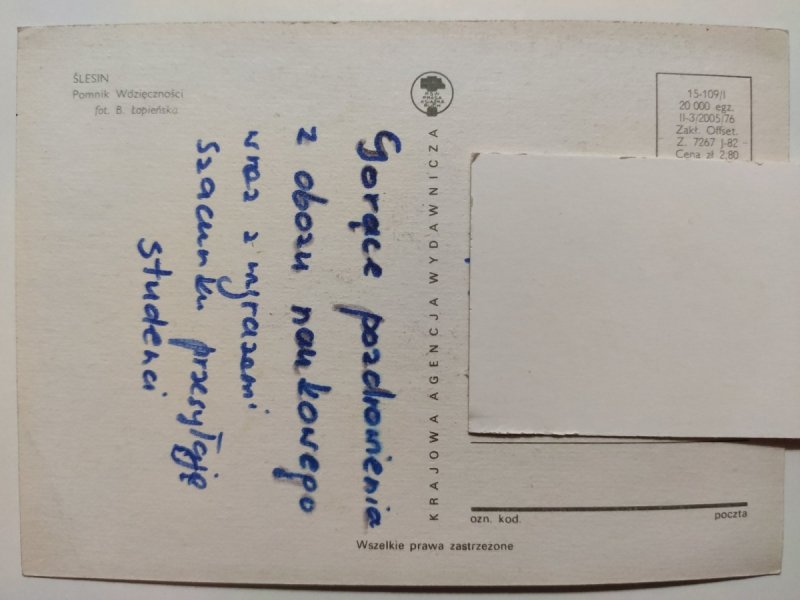 ŚLESIN
Pomnik Wdzięczności
fot. B. Łopieńska
Gorące pozdrowienia
z obozu naukowego
wraz z wyrazami
szacunku przesyłają
studenci
KRAJOWA AGENCJA WYDAWNICZA
15-109/I
20 000 egz.
II-3/2005/76
Zakł. Offset.
Z. 7267 J-82
Cena zł 2,80
ozn. kod.
poczta
Wszelkie prawa zastrzeżone